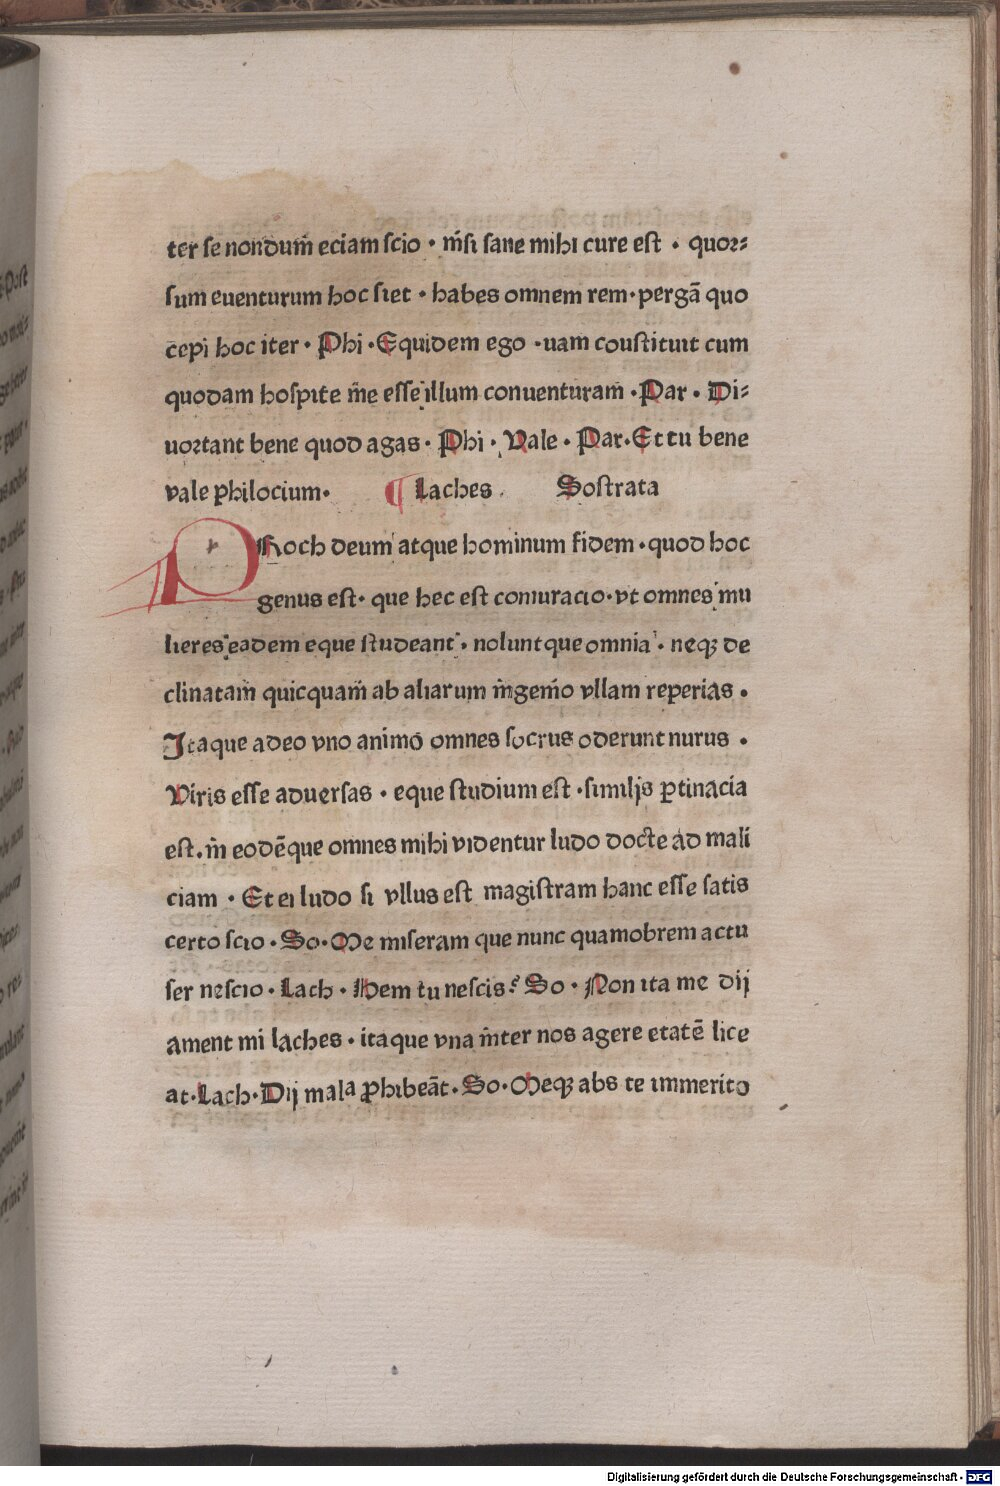 ter se nondum̄ eciam scio · nı̄si sane mihi cure est · quoꝛ⸗
sum euenturum hoc siet · habes omnem rem · pergā quo
cepi hoc iter · Phi · Equidem ego · nam constituit cum
quodam hospite m̄e esse illum conuenturam̄ · Par · Di⸗
uoꝛtant bene quod agas · Phi · Vale · Par · Et tu bene
vale philocium · ¶ Laches . Sostrata
PRoch deum atque hominum fidem · quod hoc
genus est · que hec est coniuracio · vt omnes mu
lieres eadem eque studeant · nolunt que omnia · neqꝫ de
clinatam̄ quicquam̄ ab aliarum īngenio vllam reperias ·
Itaque adeo vno animō omnes socrus oderunt nurus ·
Viris esse aduersas · eque studium est · similis ꝑtinacia
est . īn eodēque omnes mihi videntur ludo docte ad mali
ciam · Et ei ludo si vllus est magistram hanc esse satis
certo scio · So · Me miseram que nunc quamobrem actu
ser nescio · Lach · Hem tu nescis ? So · Non ita me dij
ament mi laches · itaque vna īnter nos agere etatē lice
at · Lach · Dij mala ꝓhibeāt · So · Meqꝫ abs te immerito
Digitalisierung gefördert durch die Deutsche Forschungsgemeinschaft - DFG